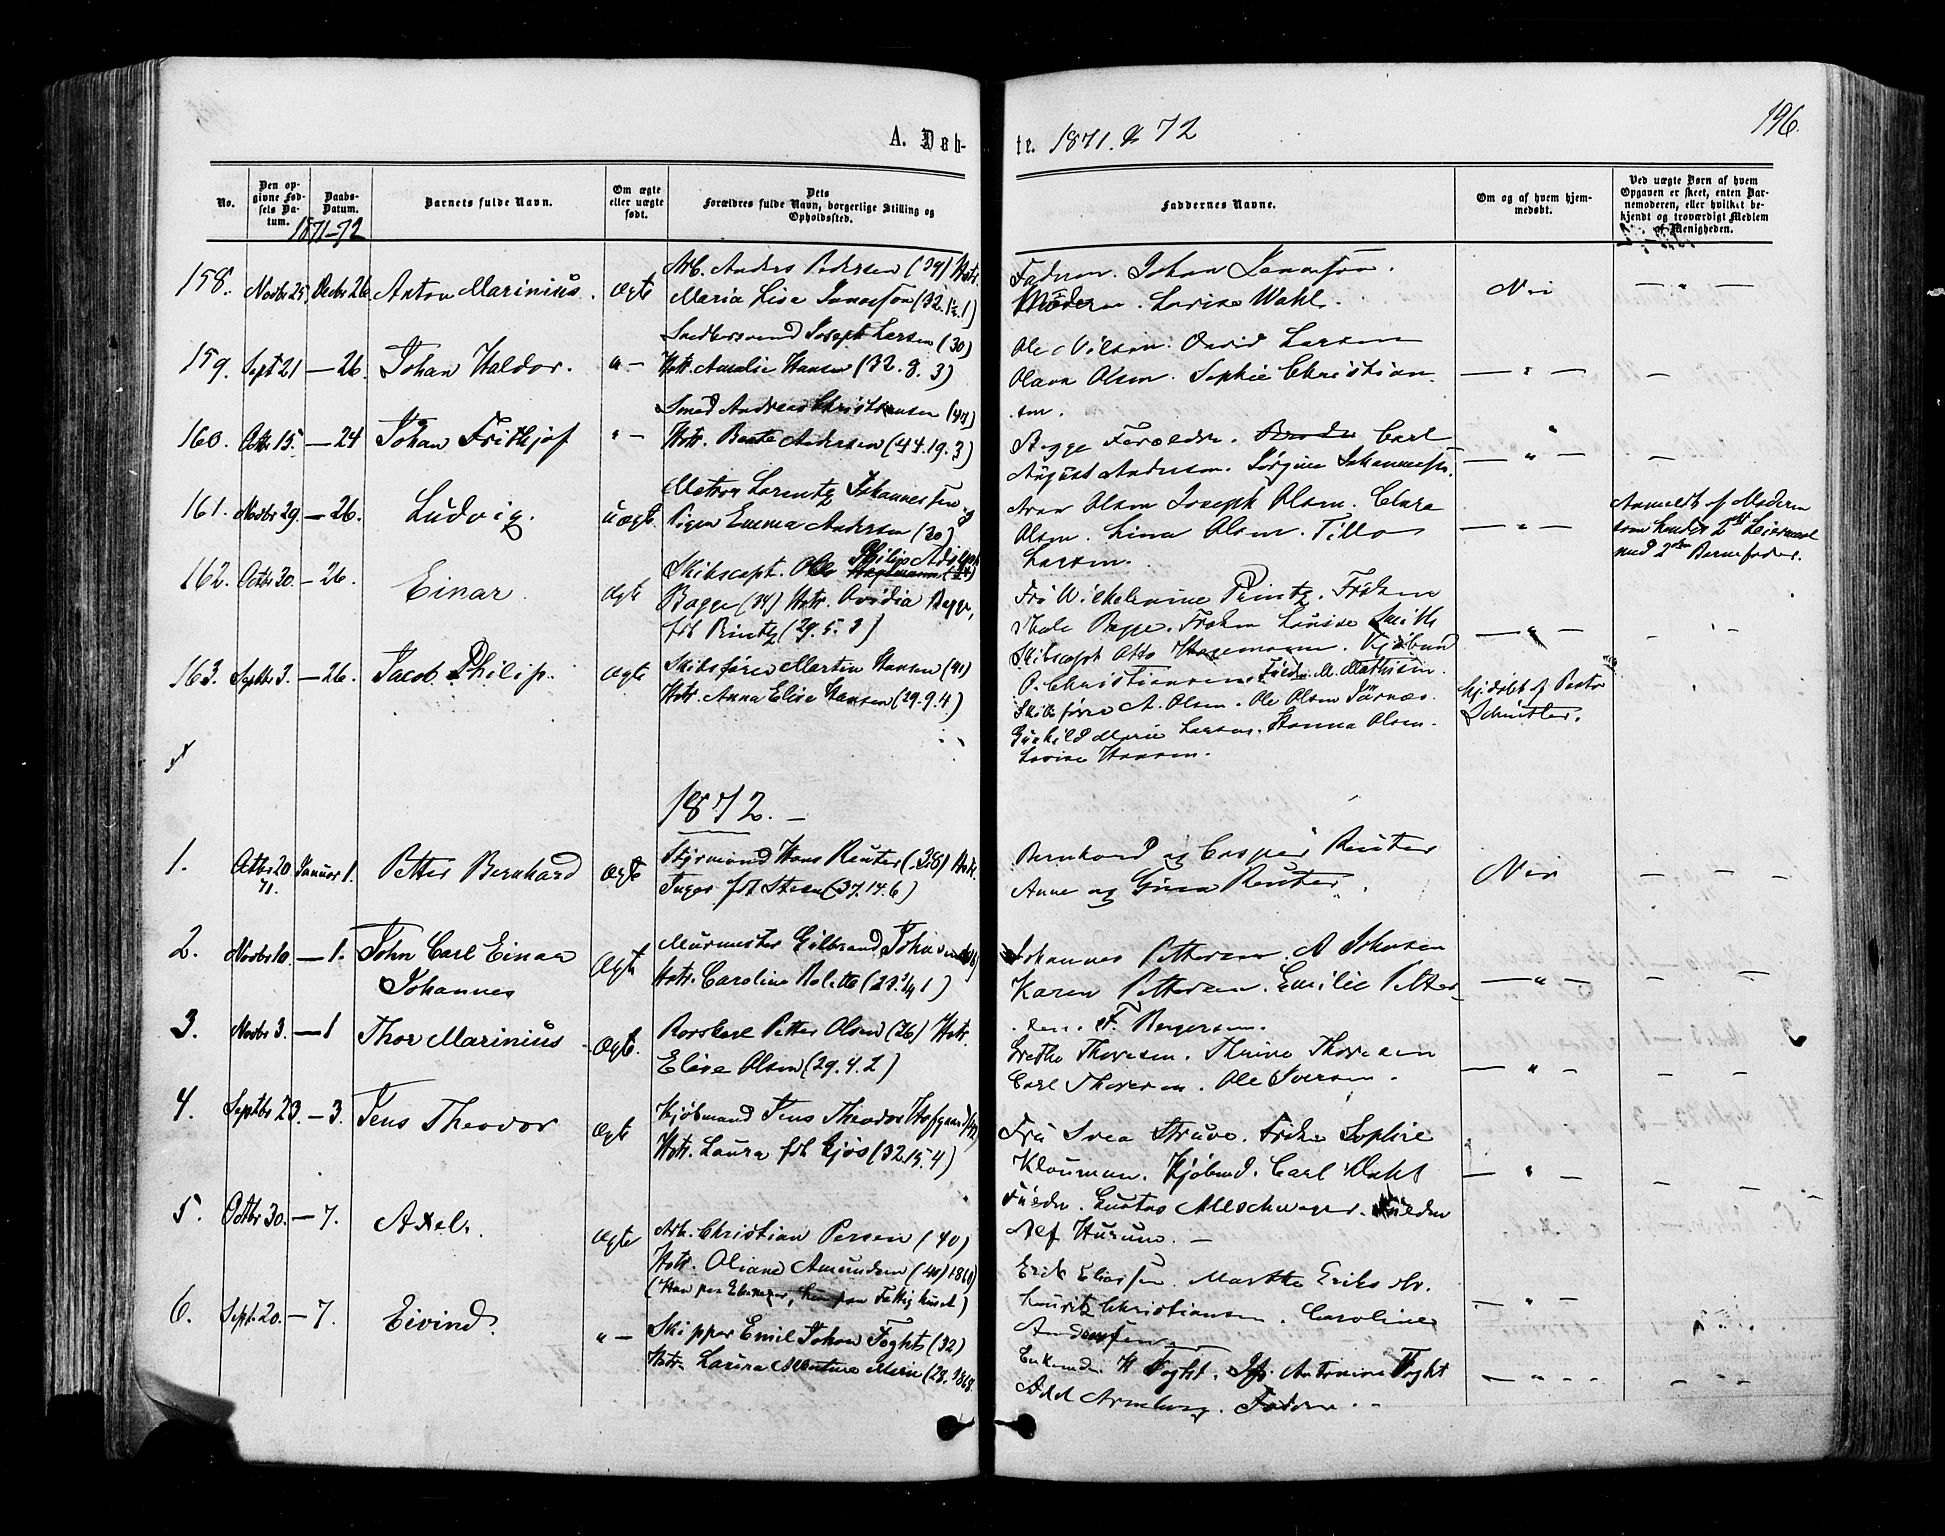 A. Døb-
te. 1871. & 72
196.
No.
Den op-
givne Fød-
sels Da-
tum.
Daabs-
Datum.
1871-72
Barnets fulde Navn.
Om ægte
eller uægte
født.
Dets
Forældres fulde Navn, borgerlige Stilling og
Opholdssted.
Faddernes Navne.
Om og af hvem hjem-
medøbt.
Ved uægte Børn af hvem
Opgaven er skeet, enten Bar-
nemoderen, eller hvilket be-
kjendt og troværdigt Medlem
af Menigheden.
158. Novbr 25. Decbr 26. Anton Marinius. Ægte
Arb. Anders Pedersen (39) Hstr.
Maria Lise
Faderen. Johan
Moderen. Lovise Wahl.
Nei
159. Sept 21 — 26. Johan Haldor. " —
Joseph Larsen (30)
Hstr. Amalie Hansen (32. 8. 3)
Ole Nilsen. David Larsen
Olava Olsen. Sophie Christian
sen.
160. Octbr 15. — 24 Johan Frithjof " —
Smed Andreas Christensen (47)
Hstr. Bente Andersen (44. 19. 3)
Begge Forældre. Carl
August Andersen. Jørgine Johannesen.
161. Novbr 29. — 26. Ludvig. uægte
Matros Lorentz Johannesen og
Pigen Emma Andersen (20)
Aron Olsen Joseph Olsen. Clara
Olsen. Lina Olsen. Tilla
Larsen.
Anmeldt af Moderen
som hendes 2det Leiermaal
med 2den Barnefader.
162. Octbr 30. — 26. Einar. Ægte
Skibscapt. Ole Philip
Bagge (34) Hstr. Ovidia Bagge,
født Printz (29. 5. 3)
Fru Wilhelmine Printz. Frøken
Thale Bagge. Frøken Louise Smith
Skibscapt Otto Hagemann. Kjøbmd
P. Christiansen
163. Septbr 3. — 26. Jacob Philip. Ægte
Skibsfører Martin Hansen (41)
Hstr. Anna Elise Hansen (29. 9. 4)
M. Mathisen.
Skibsfører A. Olsen. Ole Olsen
Gunhild Marie Larsen. Hanna Olsen.
Lovise Hansen.
hjdøbt af Pastor
Schnitler.
1872. —
1. Octbr 20 71. Januar 1. Petter Bernhard Ægte
Styrmand Hans Reuter (38) Hstr.
Inger født Steen (37. 14. 6)
Bernhard og Casper Reuter
Anne og Gina Reuter.
Nei
2. Novbr 10. — 1. John Carl Einar
Johannes
Ægte
Murmester Gulbrand Johansen
Hstr. Caroline Bolette
Johannes Pettersen. A Johnsen
Karen Pettersen. Emilie Petter
sen. F. Bergersen.
3. Novbr 3. — 1 Thor Marinius Ægte.
Petter Olsen (26) Hstr.
Elise Olsen (29. 4. 2)
Grethe Thoresen. Thrine Thoresen
Carl Thoresen. Ole Iversen.
4. Septbr 23. — 3. Jens Theodor Ægte
Kjøbmand Jens Theodor
Hstr. Laura født Gjøs (32. 15. 4)
Fru Svea Struve. Frøken Sophie
Klouman. Kjøbmd. Carl Dahl
Gustav
Alf Hurum. —
5. Octbr 30. — 7. Axel. Ægte
Arb. Christian Persen (40)
Hstr. Oliane Amundsen (40) 1860
(Han paa Ebenezer, hun paa Fattighuset)
Erik Eliassen. Marthe Eriksdtr.
Lauritz Christiansen. Caroline
Andersen
6. Sept. 20. — 7. Eivind. " —
Skipper Emil Johan Foght (32)
Hstr. Marie (28. 1868
H Foght. Antonine Foght
Faderen